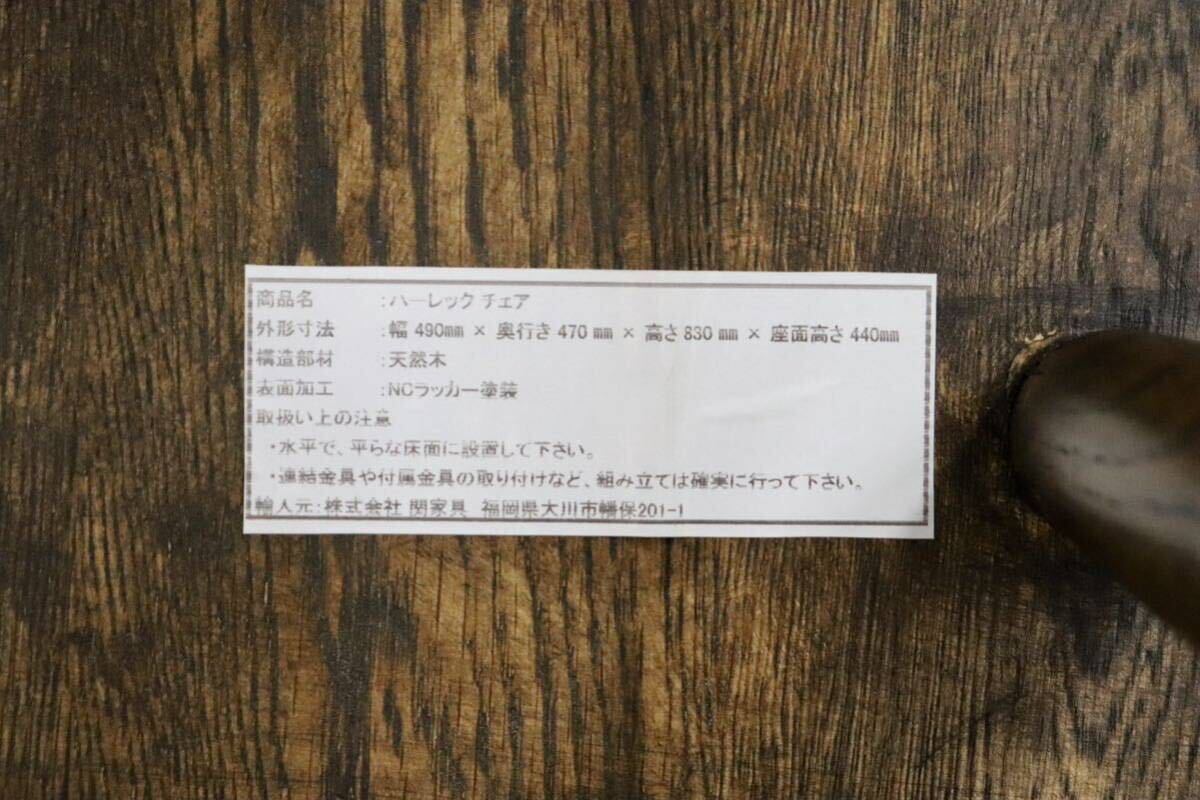 商品名 :ハーレック チェア
外形寸法 :幅 490mm × 奥行き 470 mm × 高さ 830 mm × 座面高さ 440mm
構造部材 :天然木
表面加工 :NCラッカー塗装
取扱い上の注意
・水平で、平らな床面に設置して下さい。
・連結金具や付属金具の取り付けなど、組み立ては確実に行って下さい。
輸入元:株式会社 関家具 福岡県大川市幡保201-1